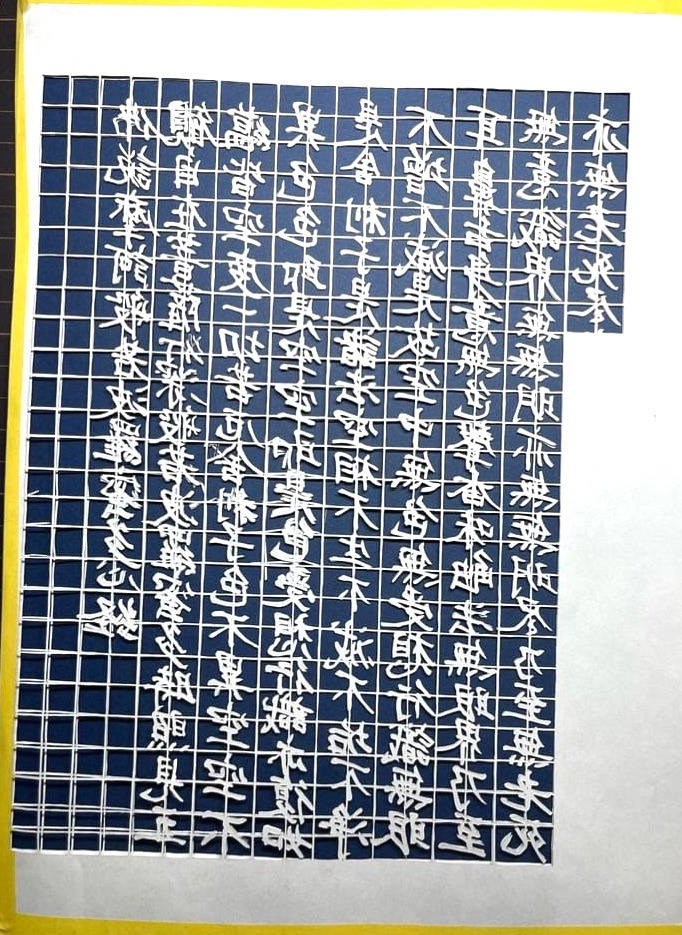 佛説摩訶般若波羅蜜多心経
観自在菩薩行深般若波羅蜜多時照見五
蘊皆空度一切苦厄舎利子色不異空空不
異色色即是空空即是色受想行識亦復如
是舎利子是諸法空相不生不滅不垢不浄
不増不減是故空中無色無受想行識無眼
耳鼻舌身意無色聲香味触法無眼界乃至
無意識界無無明亦無無明尽乃至無老死
亦無老死尽